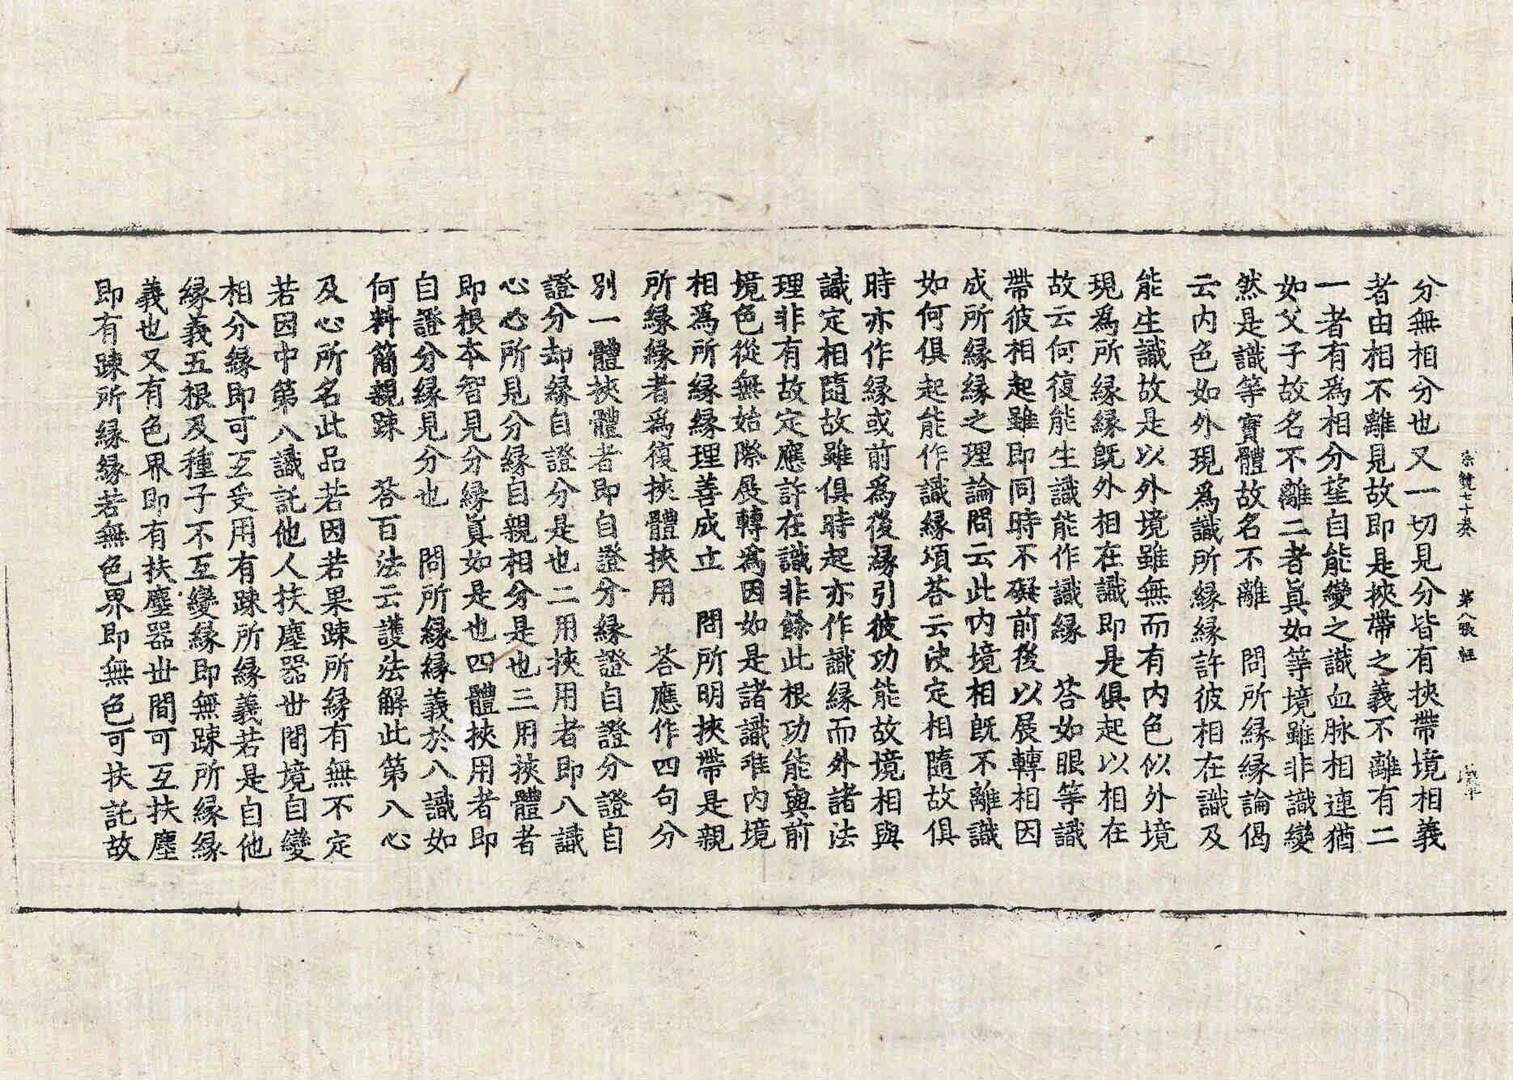 宗鏡七十卷　第八張　軽
分無相分也又一切見分皆有挾帶境相義
者由相不離見故即是挾帶之義不離有二
一者有爲相分望自能變之識血脉相連猶
如父子故名不離二者眞如等境雖非識變
然是識等實體故名不離　問所縁縁論偈
云内色如外現爲識所縁縁許彼相在識及
能生識故是以外境雖無而有内色似外境
現爲所縁縁旣外相在識即是俱起以相在
故云何復能生識能作識縁　荅如眼等識
帶彼相起雖即同時不礙前後以展轉相因
成所縁縁之理論問云此内境相旣不離識
如何俱起能作識縁頌荅云决定相隨故俱
時亦作縁或前爲後縁引彼功能故境相與
識定相隨故雖俱時起亦作識縁而外諸法
理非有故定應許在識非餘此根功能與前
境色從無始際展轉爲因如是諸識唯内境
相爲所縁縁理善成立　問所明挾帶是親
所縁縁者爲復挾體挾用　荅應作四句分
別一體挾體者即自證分縁證自證分證自
證分却縁自證分是也二用挾用者即八識
心心所見分縁自親相分是也三用挾體者
即根本智見分縁眞如是也四體挾用者即
自證分縁見分也　問所縁縁義於八識如
何料簡親踈　荅百法云護法解此第八心
及心所名此品若因若果踈所縁有無不定
若因中第八識託他人扶塵器世間境自變
相分縁即可互受用有踈所縁義若是自他
縁義五根及種子不互變縁即無踈所縁縁
義也又有色界即有扶塵器世間可互扶塵
即有踈所縁縁若無色界即無色可扶託故